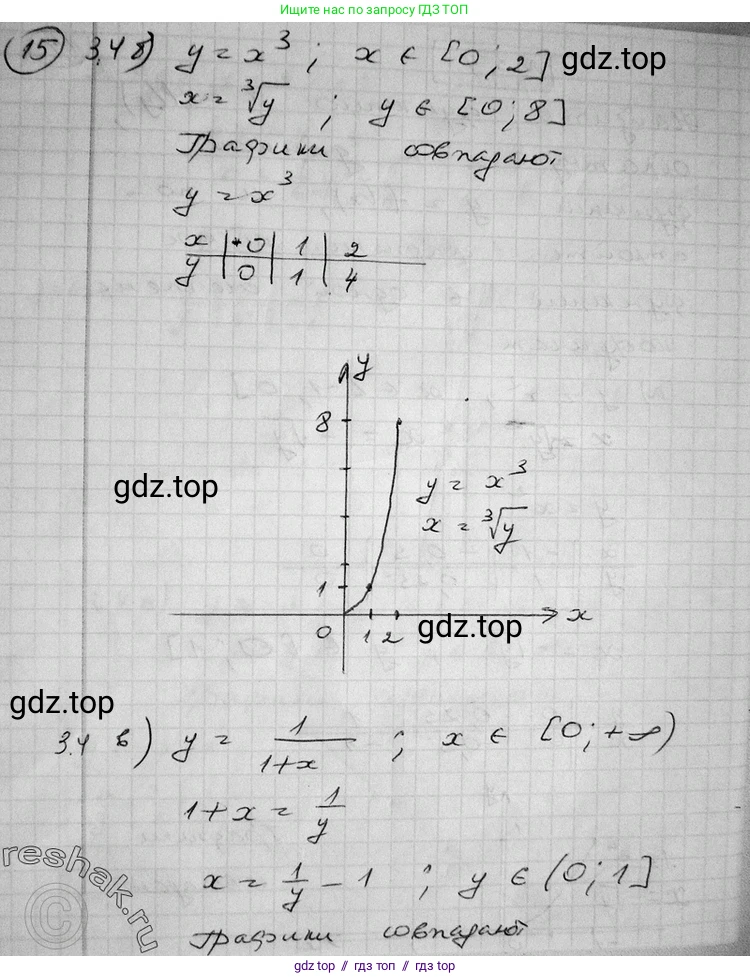 Ищите нас по запросу ГДЗ ТОП
15 3.4 б) y = x³ ; x ∈ [0 ; 2] gdz.top
x = ∛y ; y ∈ [0 ; 8]
Графики совпадают
y = x³
x | 0 | 1 | 2
y | 0 | 1 | 4
y
8
gdz.top
y = x³
x = ∛y
1
0 1 2 gdz.top x
gdz.top
3.4 в) y = 1/(1+x) ; x ∈ [0 ; +∞)
1+x = 1/y
x = 1/y - 1 ; y ∈ (0 ; 1]
Графики совпадают
reshalka.com
gdz.top // гдз топ // гдз.топ